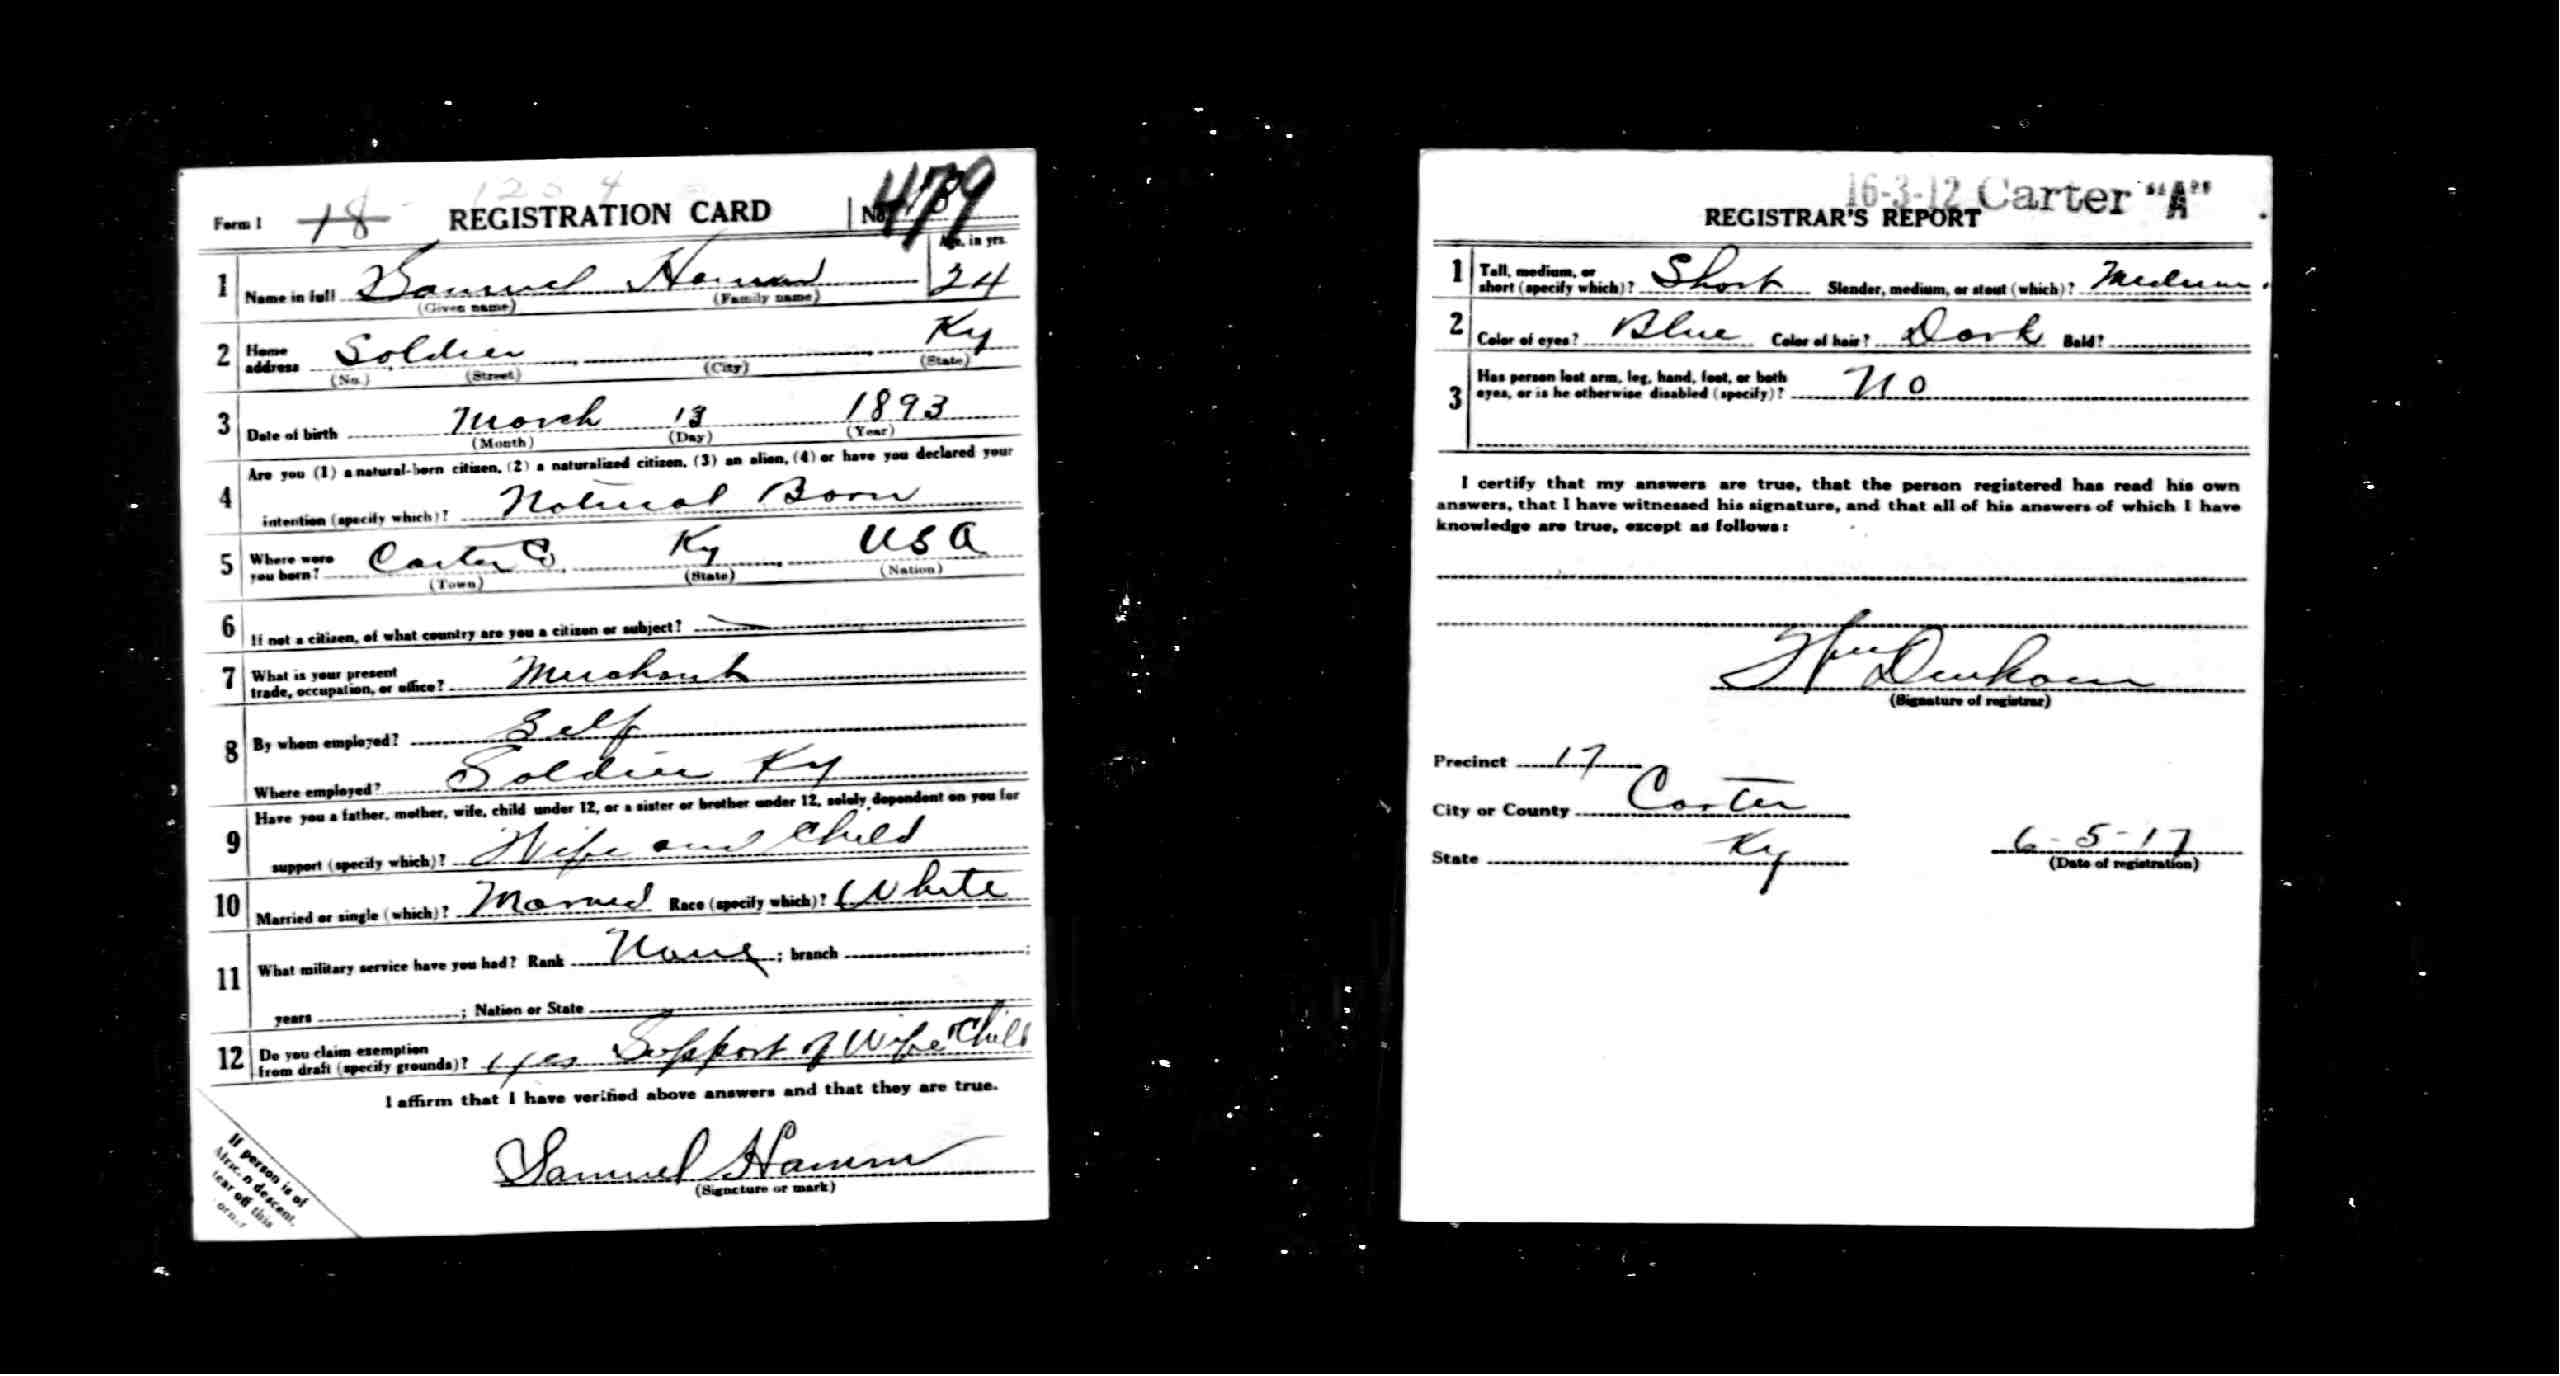 Form 1 18 1234 REGISTRATION CARD No. 479
1 Name in full Samuel Hamm Age, in yrs. 24
(Given name) (Family name)
2 Home address Soldier Ky
(No.) (Street) (City) (State)
3 Date of birth March 13 1893
(Month) (Day) (Year)
4 Are you (1) a natural-born citizen, (2) a naturalized citizen, (3) an alien, (4) or have you declared your
intention (specify which)? Natural Born
5 Where were you born? Carter Co Ky USA
(Town) (State) (Nation)
6 If not a citizen, of what country are you a citizen or subject?
7 What is your present trade, occupation, or office? Merchant
8 By whom employed? Self
Where employed? Soldier Ky
9 Have you a father, mother, wife, child under 12, or a sister or brother under 12, solely dependent on you for
support (specify which)? Wife and Child
10 Married or single (which)? Married Race (specify which)? White
11 What military service have you had? Rank None ; branch ;
years ; Nation or State
12 Do you claim exemption from draft (specify grounds)? yes Support of Wife & Child
I affirm that I have verified above answers and that they are true.
Samuel Hamm
(Signature or mark)
If person is of
African descent,
tear off this
corner
16-3-12 Carter "A"
REGISTRAR'S REPORT
1 Tall, medium, or short (specify which)? Short Slender, medium, or stout (which)? Medium
2 Color of eyes? Blue Color of hair? Dark Bald?
3 Has person lost arm, leg, hand, foot, or both
eyes, or is he otherwise disabled (specify)? No
I certify that my answers are true, that the person registered has read his own
answers, that I have witnessed his signature, and that all of his answers of which I have
knowledge are true, except as follows:
(Signature of registrar)
Precinct 17
City or County Carter
State Ky 6-5-17
(Date of registration)